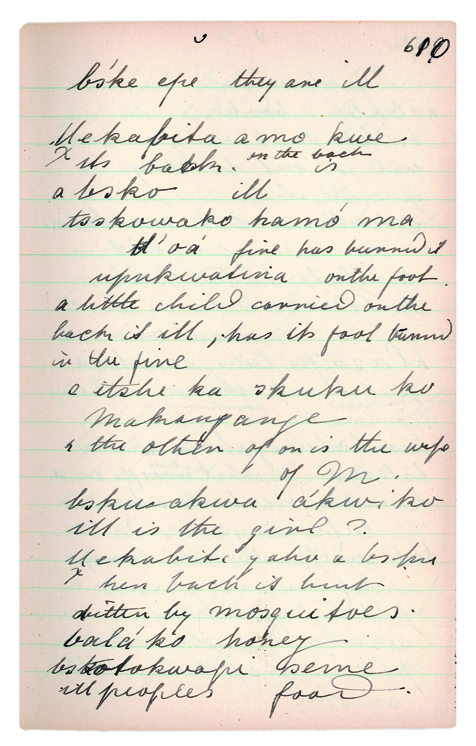 bśke epe they are ill
Uekabita amo kwe
x its back. on the back is
a bsko ill
tsskowako hamó ma
tl'oá fire has burned it
upukwatina on the foot
a little child carried on the
back is ill, has its foot burned
in the fire
e etshe ka skuku ko
makangange
the other of on is the wife
of M.
ákwiko
ill is the girl ?
x her back is hurt
bitten by mosquitoes.
balá ko honey
seme
ill peoples food.